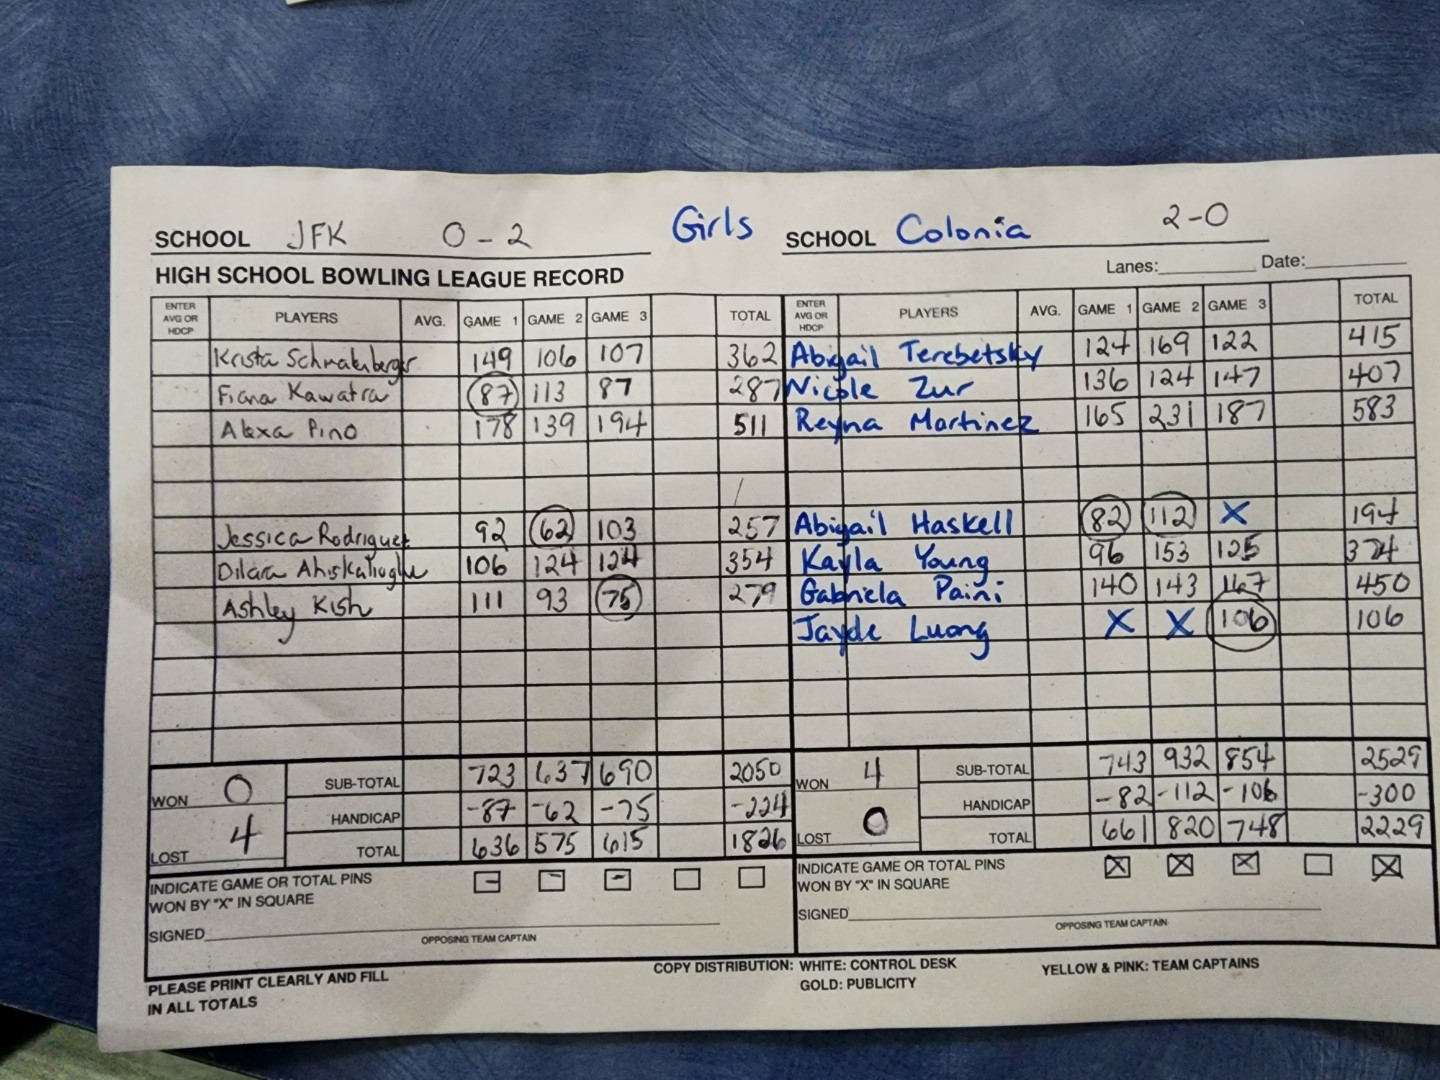 SCHOOL JFK 0-2 Girls SCHOOL Colonia 2-0
HIGH SCHOOL BOWLING LEAGUE RECORD Lanes: Date:
ENTER AVG OR HDCP PLAYERS AVG. GAME 1 GAME 2 GAME 3 TOTAL ENTER AVG OR HDCP PLAYERS AVG. GAME 1 GAME 2 GAME 3 TOTAL
Krista Schmalenberger 149 106 107 362 Abigail Terebetsky 124 169 122 415
Fiona Kawatra 87 113 87 287 Nicole Zur 136 124 147 407
Alexa Pino 178 139 194 511 Reyna Martinez 165 231 187 583
Jessica Rodriguez 92 62 103 257 Abigail Haskell 82 112 X 194
Dilara Ahiskalioglu 106 124 124 354 Kayla Young 96 153 125 374
Ashley Kish 111 93 75 279 Gabriela Paini 140 143 167 450
Jayde Luong X X 106 106
WON 0 SUB-TOTAL 723 637 690 2050 WON 4 SUB-TOTAL 743 932 854 2529
HANDICAP -87 -62 -75 -224 HANDICAP -82 -112 -106 -300
LOST 4 TOTAL 636 575 615 1826 LOST 0 TOTAL 661 820 748 2229
INDICATE GAME OR TOTAL PINS - - - INDICATE GAME OR TOTAL PINS X X X X
WON BY "X" IN SQUARE WON BY "X" IN SQUARE
SIGNED SIGNED
OPPOSING TEAM CAPTAIN OPPOSING TEAM CAPTAIN
PLEASE PRINT CLEARLY AND FILL COPY DISTRIBUTION: WHITE: CONTROL DESK YELLOW & PINK: TEAM CAPTAINS
IN ALL TOTALS GOLD: PUBLICITY